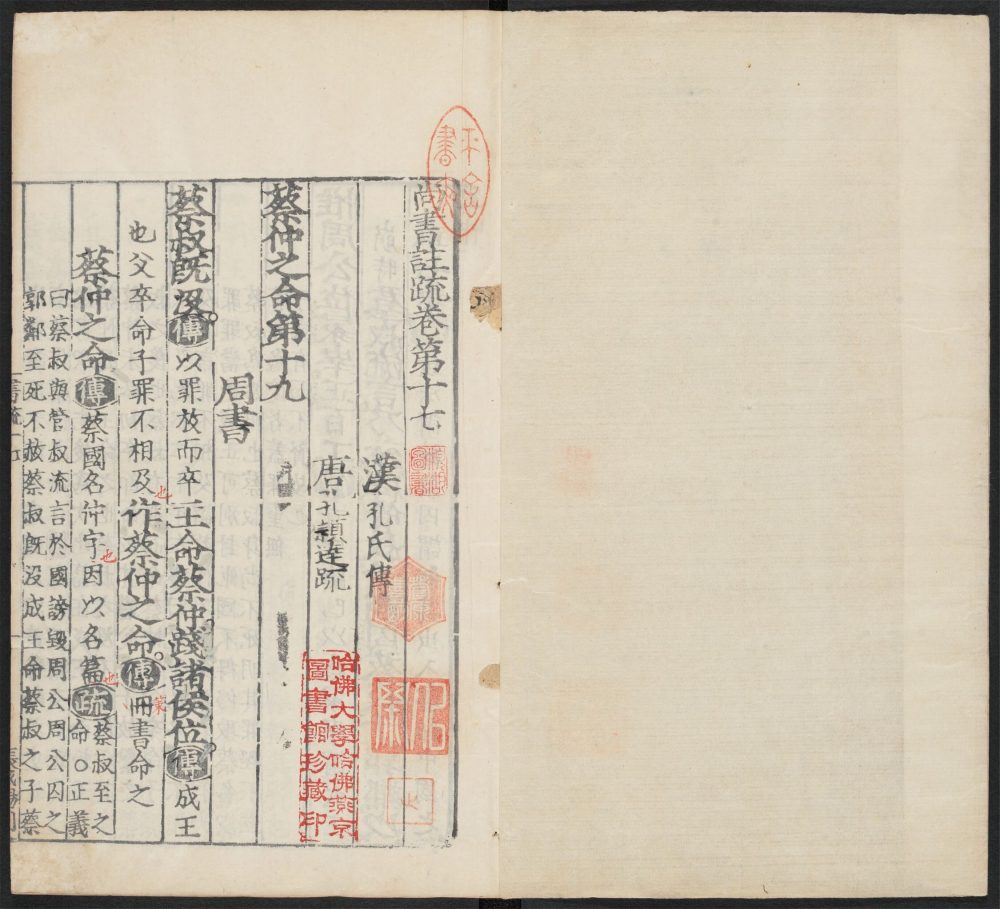 尚書註疏卷第十七
漢孔氏傳
唐孔穎達疏
蔡仲之命第十九
周書
蔡叔既沒傳以罪放而卒王命蔡仲踐諸侯位傳成王
也父卒命子罪不相及也作蔡仲之命傳冊書命之
策
蔡仲之命傳蔡國名仲字因以名篇疏蔡叔至之命○正義
也
也
曰蔡叔與管叔流言於國謗毀周公周公囚之
郭鄰至死不赦蔡叔既沒成王命蔡叔之子蔡
書疏十七
哈佛大學哈佛燕京
圖書館珍藏印